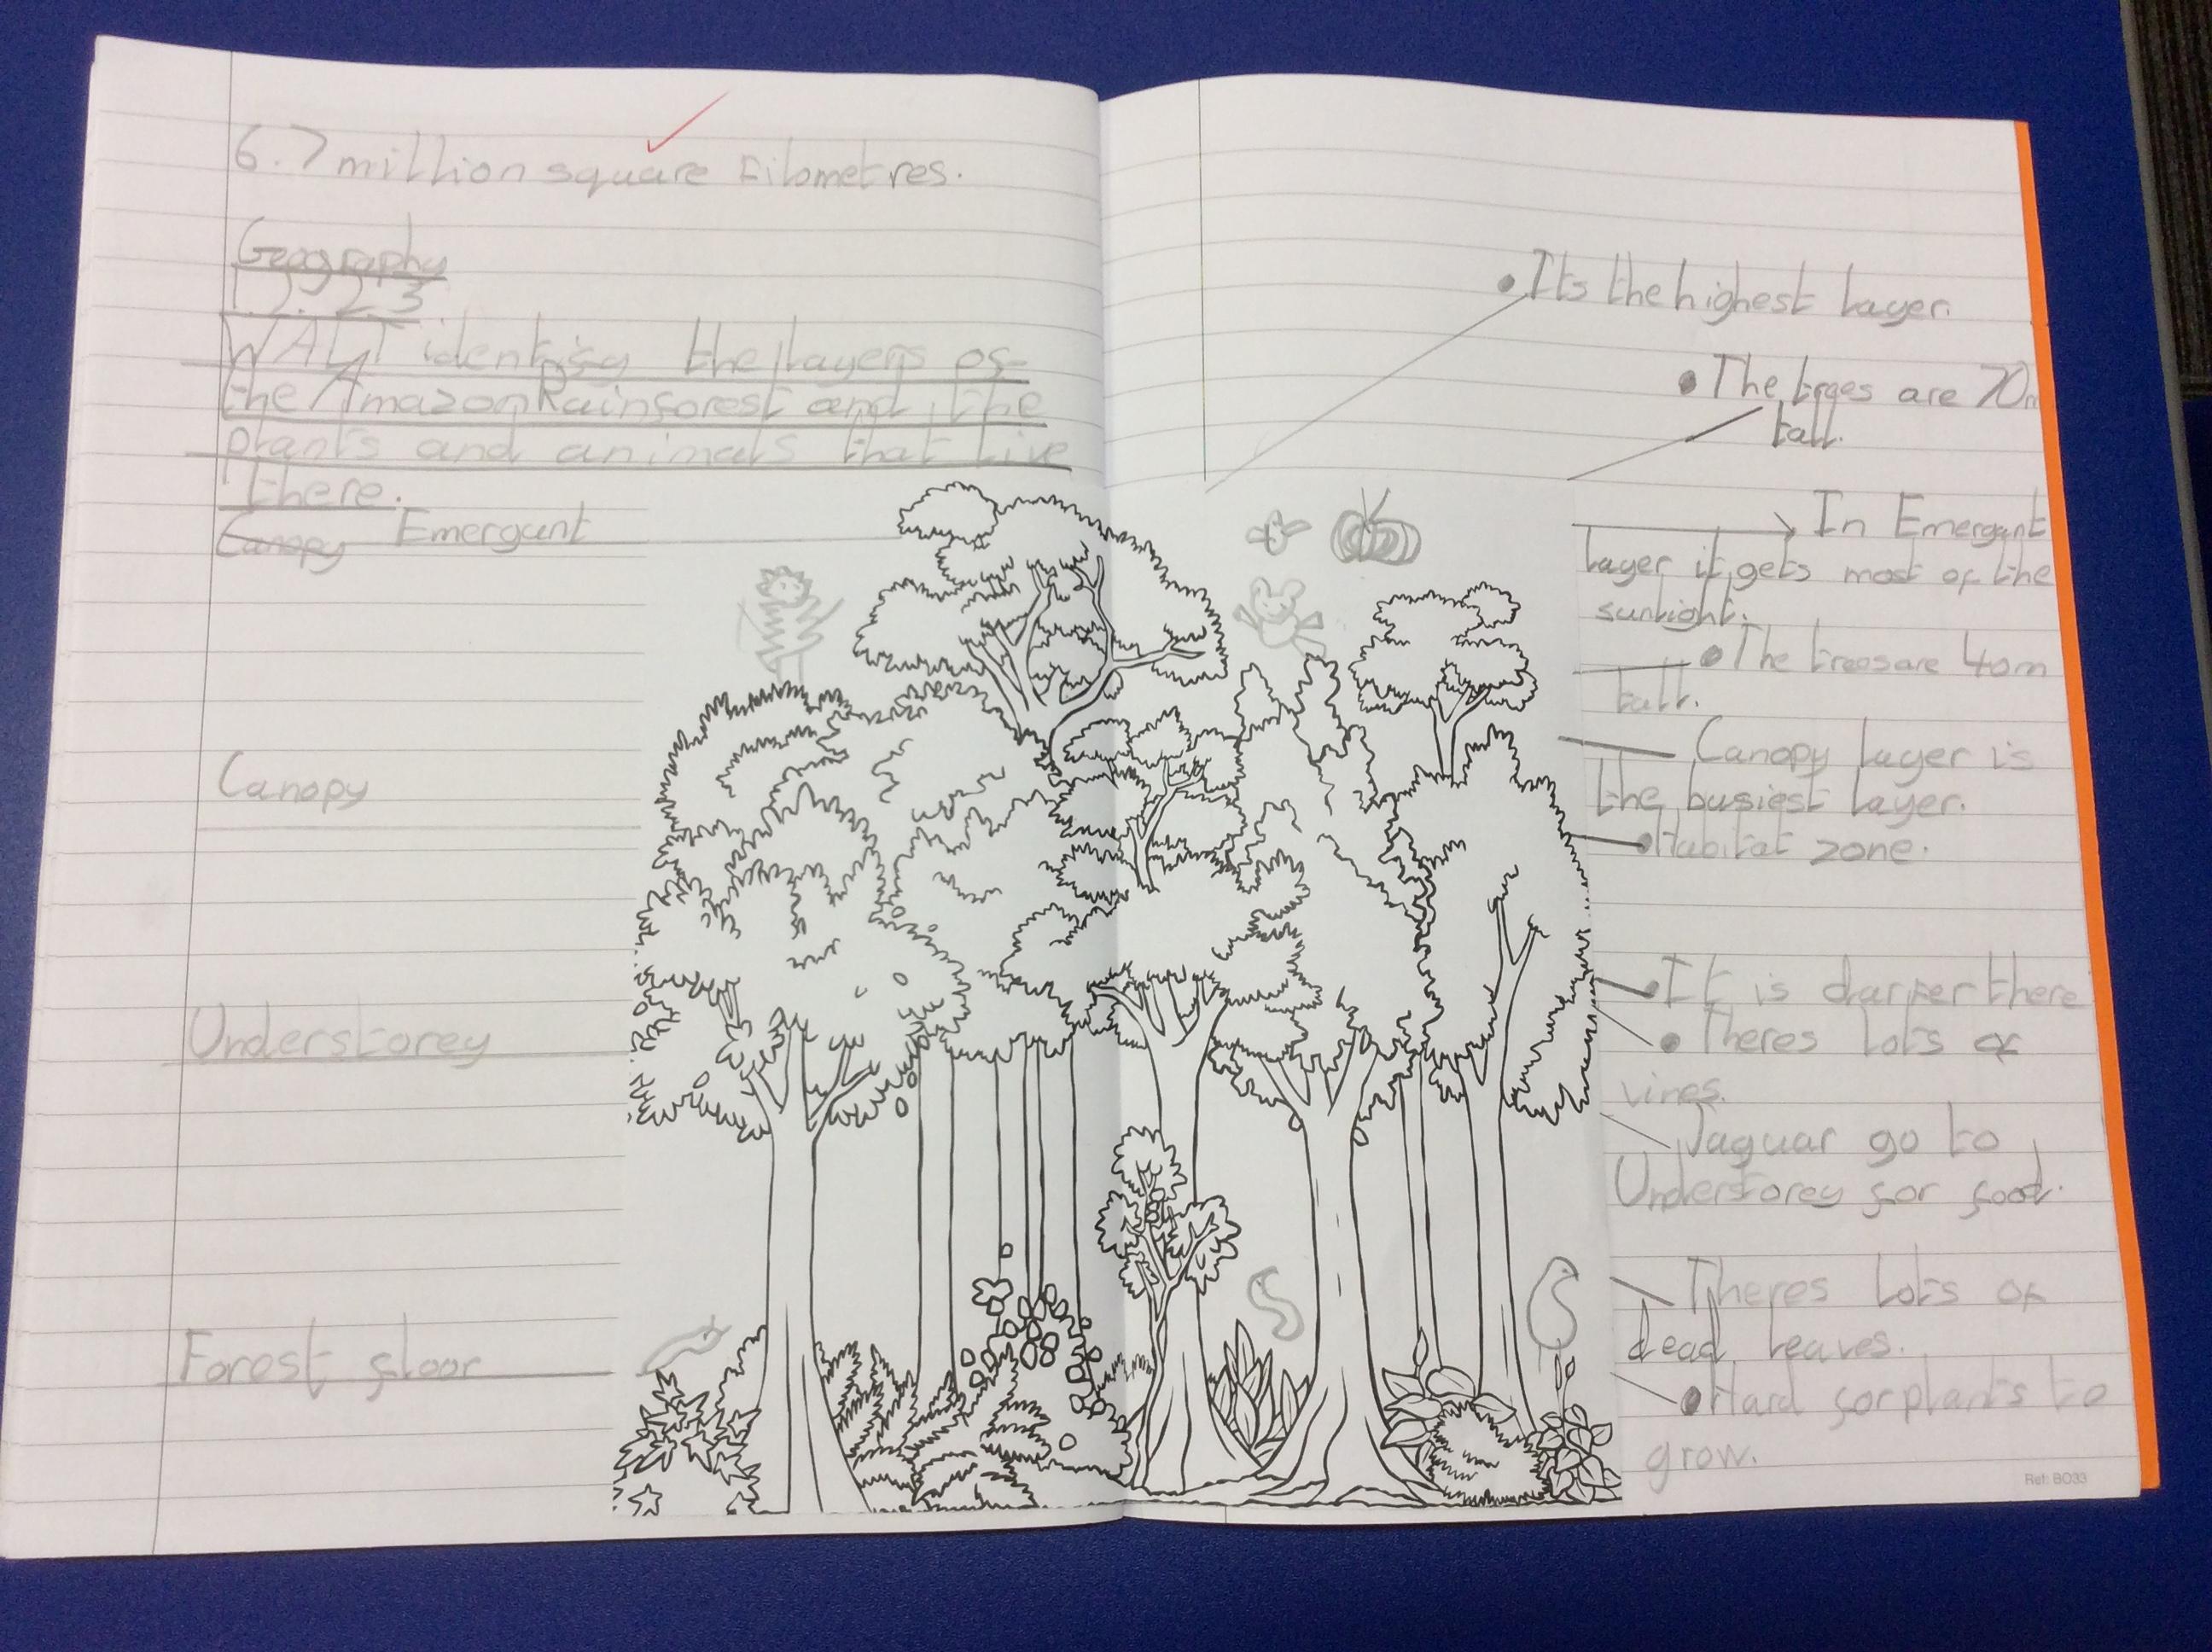 6.7 million square kilometres.
Geography
17.2.23
WALT identify the layers of
the Amazon Rainforest and the
plants and animals that live
there.
Canopy Emergant
Canopy
Understorey
Forest floor
• Its the highest layer.
• The trees are 70m
tall.
In Emergant
layer it gets most of the
sunlight.
• The trees are 40m
tall.
Canopy layer is
the busiest layer.
• Habitat zone.
• It is darker there
• Theres lots of
vines.
Jaguar go to
Understorey for food.
Theres lots of
dead leaves.
• Hard for plants to
grow.
Ref: BO33